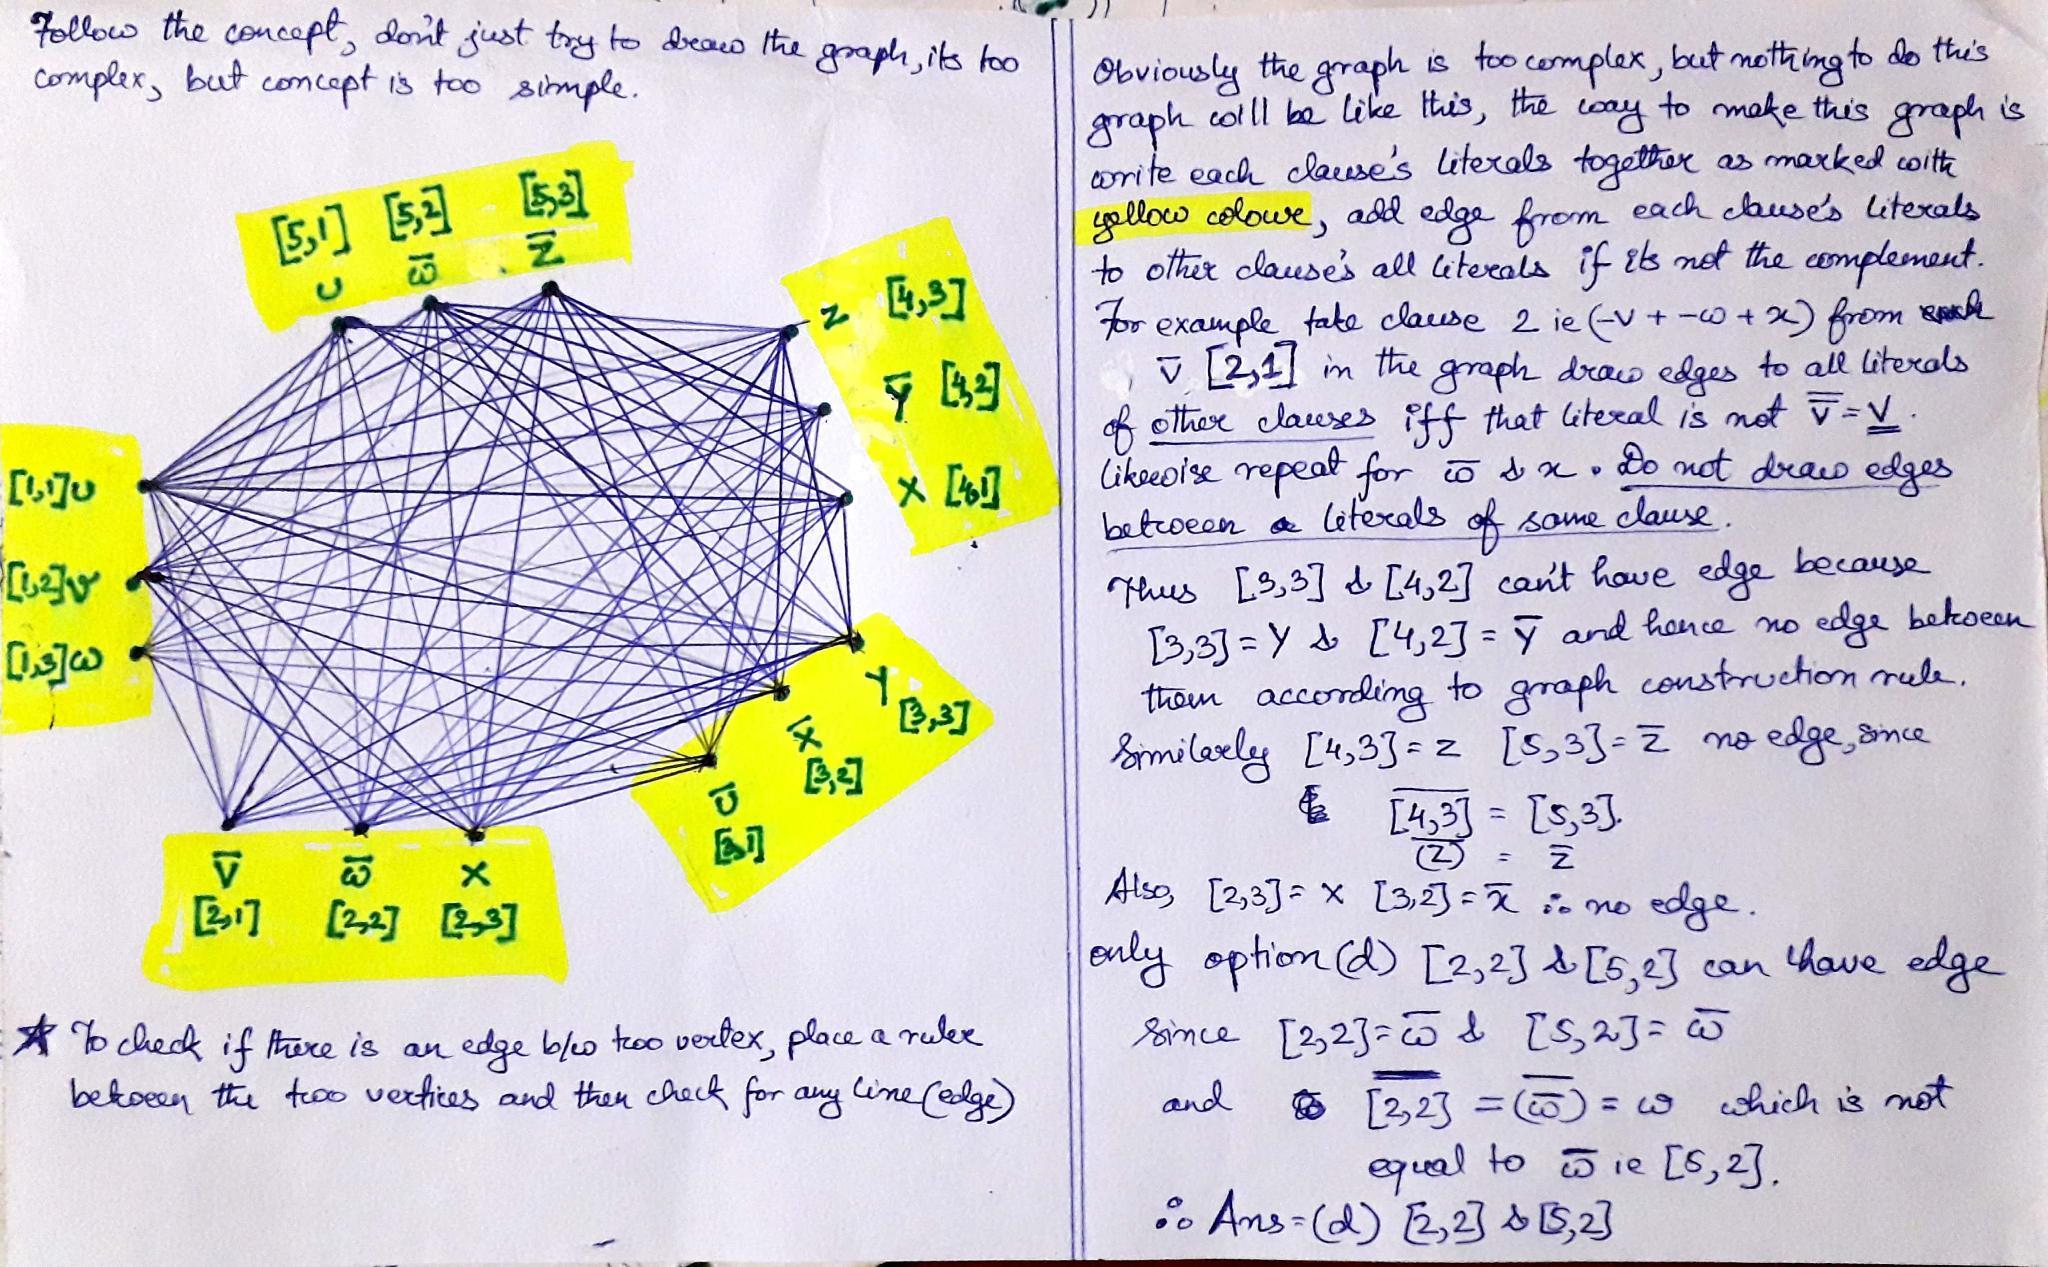 Follow the concept, don't just try to draw the graph, its too
complex, but concept is too simple.
[5,1] [5,2] [5,3]
U w̅ z̅
z [4,3]
y̅ [4,2]
x [4,1]
[1,1]U
[1,2]v
[1,3]w
Y [3,3]
x̅ [3,2]
U̅ [3,1]
v̅ w̅ x
[2,1] [2,2] [2,3]
★ To check if there is an edge b/w too vertex, place a ruler
between the two vertices and then check for any line (edge)
Obviously the graph is too complex, but nothing to do this
graph will be like this, the way to make this graph is
write each clause's literals together as marked with
yellow colour, add edge from each clause's literals
to other clause's all literals if its not the complement.
For example take clause 2 ie (-v + -w + x) from
v̅ [2,1] in the graph draw edges to all literals
of other clauses iff that literal is not v̿ = v.
likewise repeat for w̅ & x. Do not draw edges
between literals of same clause.
Thus [3,3] & [4,2] can't have edge because
[3,3] = Y & [4,2] = y̅ and hence no edge between
them according to graph construction rule.
Similarly [4,3] = z [5,3] = z̅ no edge, since
[4,3]̅ = [5,3].
(z)̅ = z̅
Also, [2,3] = x [3,2] = x̅ ∴ no edge.
only option (d) [2,2] & [5,2] can have edge
since [2,2] = w̅ & [5,2] = w̅
and [2,2]̅ = (w̅)̅ = w which is not
equal to w̅ ie [5,2].
∴ Ans = (d) [2,2] & [5,2]